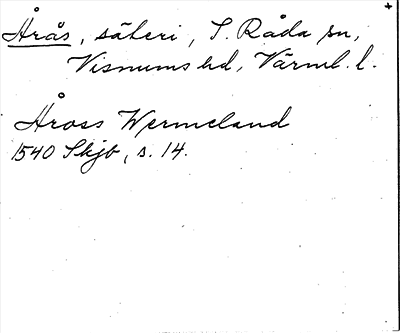 Årås, säteri, S. Råda sn,
Visnums hd, Värml. l.
Åross Wermeland
1540 Skjb, s. 14.